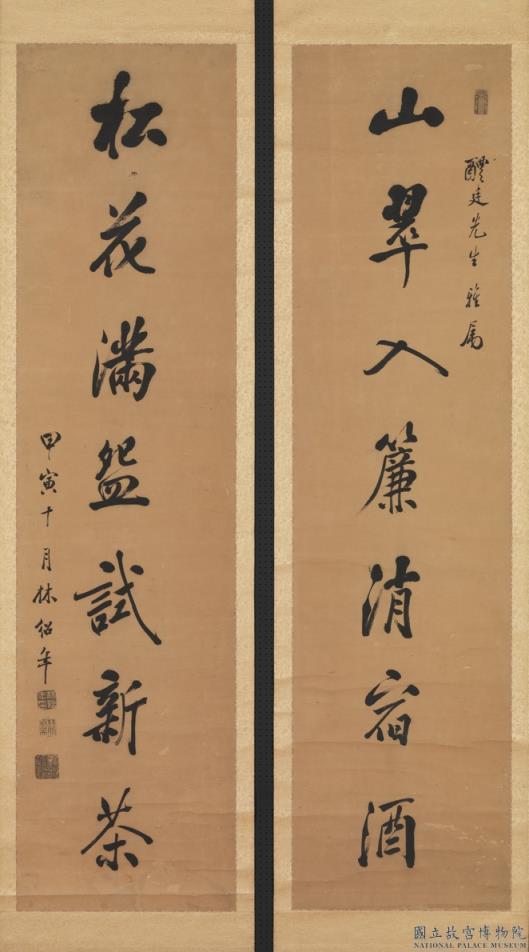 醴廷先生雅属
山翠入簾消宿酒
松花滿盌試新茶
甲寅十月林紹年
國立故宮博物院
NATIONAL PALACE MUSEUM